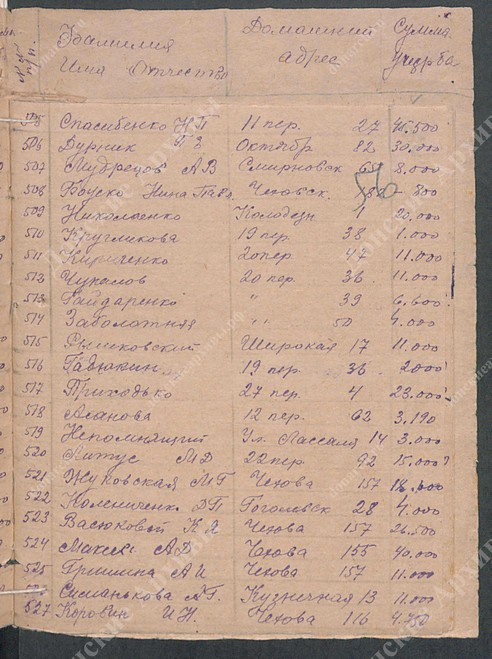 №№ п/п. Фамилия Имя Отчество Домашний адрес Сумма ущерба
505 Спасибенко Н П 11 пер. 27 45.500
506 Дурник П З Октябр 82 30.000
507 Мудрецов А В Смирновск 8.000
508 Нина Павл. Чеховск. 800
509 Николаенко Колодезн 1 20.000
510 Кругликова 19 пер. 38 1.000
511 Кириченко 20 пер. 47 11.000
512 Чукалов 20 пер. 36 11.000
513 Гайдаренко " 39 6.600
514 Заболотняя " 50 4.000
515 Рышковский Широкая 17 11.000
516 Гадюкин 19 пер. 36 2000
517 Приходько 27 пер. 4 23.000
518 Асанова 12 пер. 62 3.190
519 Непомнящий Ул. Лассаля 14 3.000
520 Титус М Д 22 пер. 92 15.000
521 Жуковская М Г Чехова 157
522 Колениченко Д П Гоголевск 28 4.000
523 Васюковой К Я Чехова 157 26.500
524 Максес А Д Чехова 155 40.000
525 Гришина А И Чехова 157 11.000
526 Симанькова М Г. Кузнечная 13 11.000
527 Коровин И Н. Чехова 116 4.750